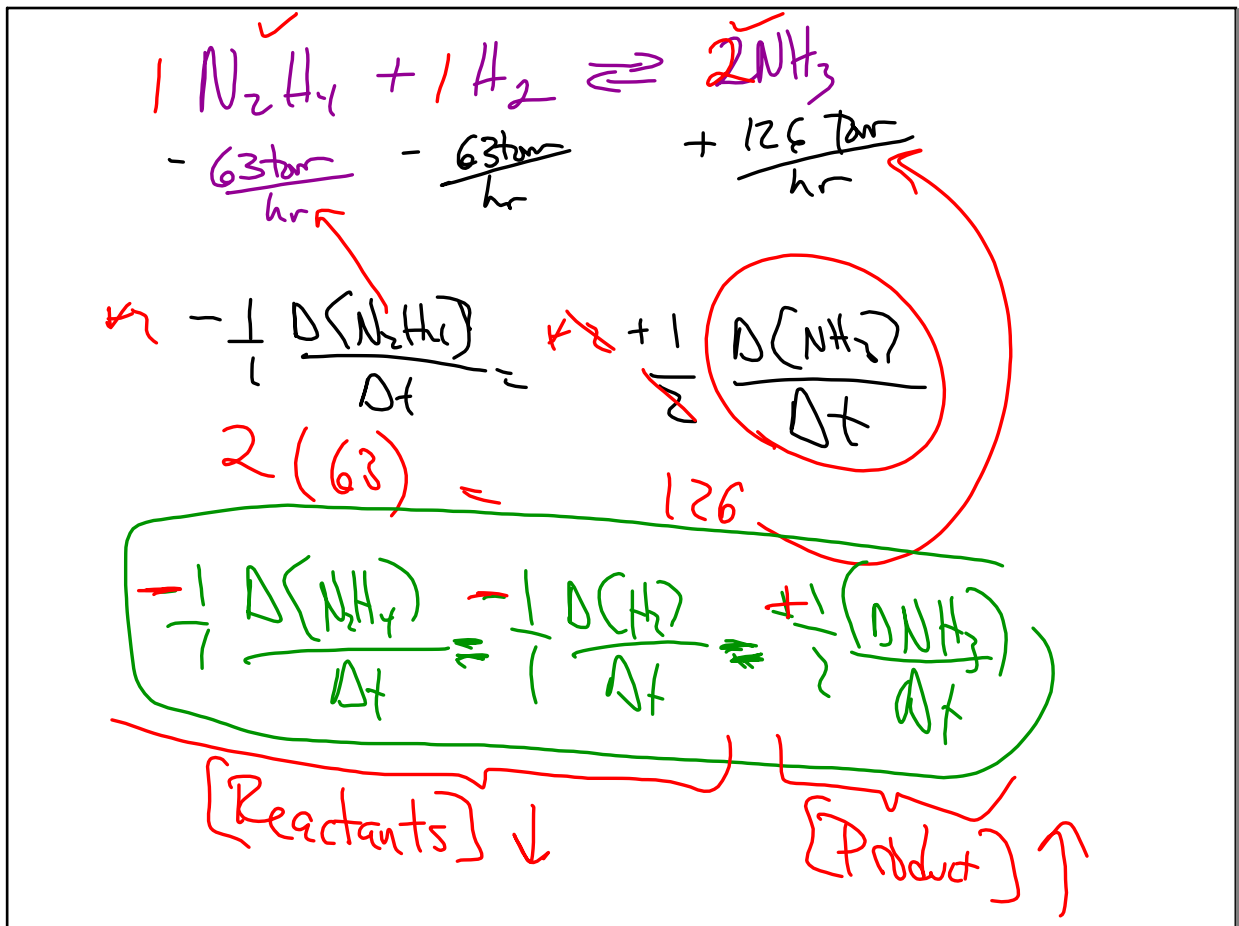 1 N₂H₄ + 1 H₂ ⇌ 2NH₃
- 63torr/hr - 63torr/hr + 126 Torr/hr
- 1/1 Δ(N₂H₄)/Δt = +1/2 Δ(NH₃)/Δt
2 (63) = 126
- 1/1 Δ(N₂H₄)/Δt = - 1/1 Δ(H₂)/Δt = + 1/2 (ΔNH₃)/Δt
[Reactants] ↓ [Product] ↑